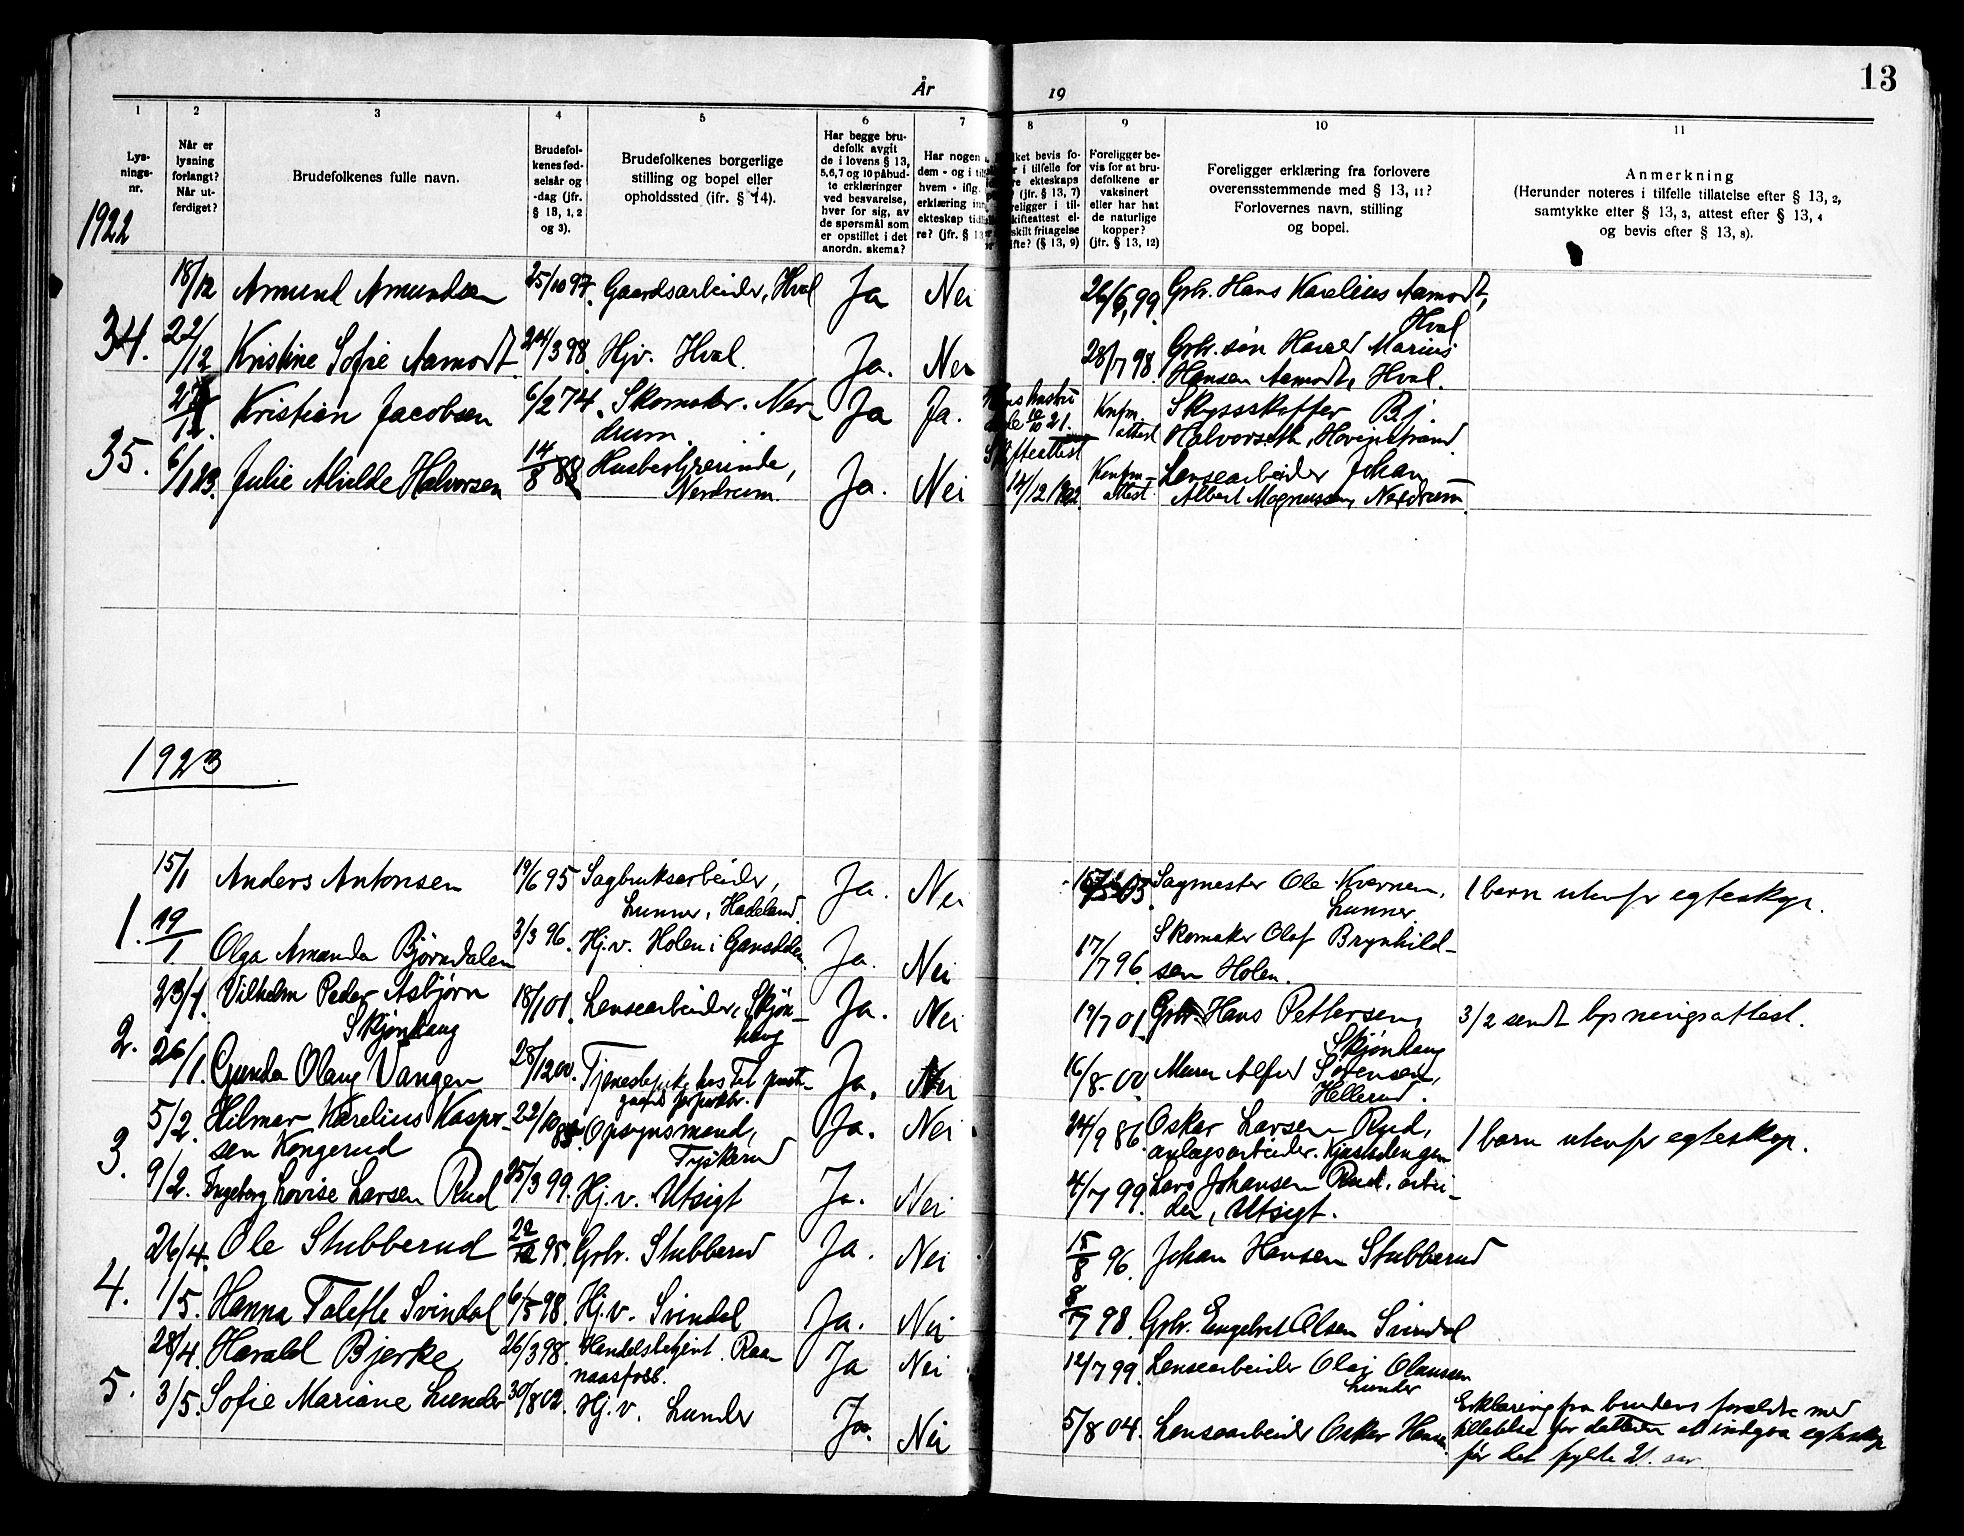 År 19
13
1 2 3 4 5 6 7 8 9 10 11
Lys-
nings-
nr.
Når er
lysning
forlangt?
Når ut-
ferdiget?
Brudefolkenes fulle navn.
Brudefol-
kenes fød-
selsår og
-dag (jfr.
§ 13, 1, 2
og 3).
Brudefolkenes borgerlige
stilling og bopel eller
opholdssted (ifr. § 14).
Har begge bru-
defolk avgit
de i lovens § 13,
5,6,7 og 10 påbud-
te erklæringer
ved besvarelse,
hver for sig, av
de spørsmål som
er opstillet i det
anordn. skema?
Har nogen
dem - og i
hvem - iflg.
erklæring
ekteskap
re? (jfr. §
bevis fo-
i tilfelle for
ekteskaps
(jfr. § 13, 7)
i til-
skifteattest el-
fritagelse
(§ 13, 9)
Foreligger be-
vis for at bru-
defolkene er
vaksinert
eller har hat
de naturlige
kopper?
(jfr. § 13, 12)
Foreligger erklæring fra forlovere
overensstemmende med § 13, 11?
Forlovernes navn, stilling
og bopel.
Anmerkning
(Herunder noteres i tilfelle tillatelse efter § 13, 2,
samtykke efter § 13, 3, attest efter § 13, 4
og bevis efter § 13, 8).
1922
34.
18/12 Amund Amundsen 25/10 97. Gaardsarbeider, Hval Ja Nei 26/6, 99. Grbr. Hans Karelius Aamodt,
Hval
22/12 Kristine Sofie Aamodt 24/3 98. Hjv. Hval. Ja. Nei 28/7 98. Grbr. søn Harald Marius
Hansen Aamodt, Hval.
35.
Kristian Jacobsen 6/2 74. Skomaker. Ner-
drum. Ja Ja. 21. Knfm.
attest Skyssskaffer Bj.
Halvorseth, Hovinstrand
6/1 23. Julie Alvilde Halvorsen 14/8 88 Husbestyrerinde,
Nerdrum. Ja. Nei Skifteattest
14/12 1922 Konfm-
attest. Lensearbeider Johan
Albert Magnussen, Nerdrum
1923
1.
15/1 Anders Antonsen 19/6 95 Sagbruksarbeider,
Lunner, Hadeland. Ja. Nei Sagmester Ole Kvernen,
Lunner. 1 barn utenfr egteskap.
19/1 Olga Amanda Bjørndalen 3/3 96. Hj.v. Holen i Gansdalen. Ja. Nei 17/7 96. Skomaker Olaf Brynhild-
sen Holen.
2.
23/1. Vilhelm Peder Asbjørn
Skjønhaug 18/1 01. Lensearbeider, Skjøn-
haug Ja. Nei 19/7 01. Grbr. Hans Pettersen,
Skjønhaug 3/2 sendt lysningsattest.
26/1. Gunda Olaug Vangen 28/12 00. Tjenestepike hos Ja. Nei 16/8. 00. Murer Alfred Sørensen,
Hellerud.
3.
5/2. Hilmar Karelius Kasper-
sen Kongerud 22/10 Opsynsmand,
Tyskerud Ja. Nei 24/9 86. Oskar Larsen Rud,
anlagsarbeider. 1 barn utenfr egteskap.
9/2. Ingeborg Lovise Larsen Rud 25/3 99. Hj.v. Utsigt Ja. Nei 4/7 99. Lars Johansen Rud, arbei-
der, Utsigt.
4.
26/4. Ole Stubberud 22/12 95. Grbr. Stubberud Ja. Nei 15/8 96. Johan Hansen Stubberud
1/5. Hanna Tolefle Svindal 6/5 98. Hj.v. Svindal Ja. Nei 8/7 98. Grbr. Engebret Olsen Svindal
5.
28/4. Harald Bjerke 26/3 98. Handelsbetjent. Raa-
naasfoss. Ja Nei 12/7 99. Lensearbeider Olaf Olaussen
Lunder
3/5. Sofie Mariane Lunder 30/8 02. Hj.v. Lunder Ja. Nei 5/8 04. Lensearbeider Oskar Hansen Erklæring fra brudens forældre med
tillatelse for datteren at indgaa egteskap
før det fyldte 21. aar.